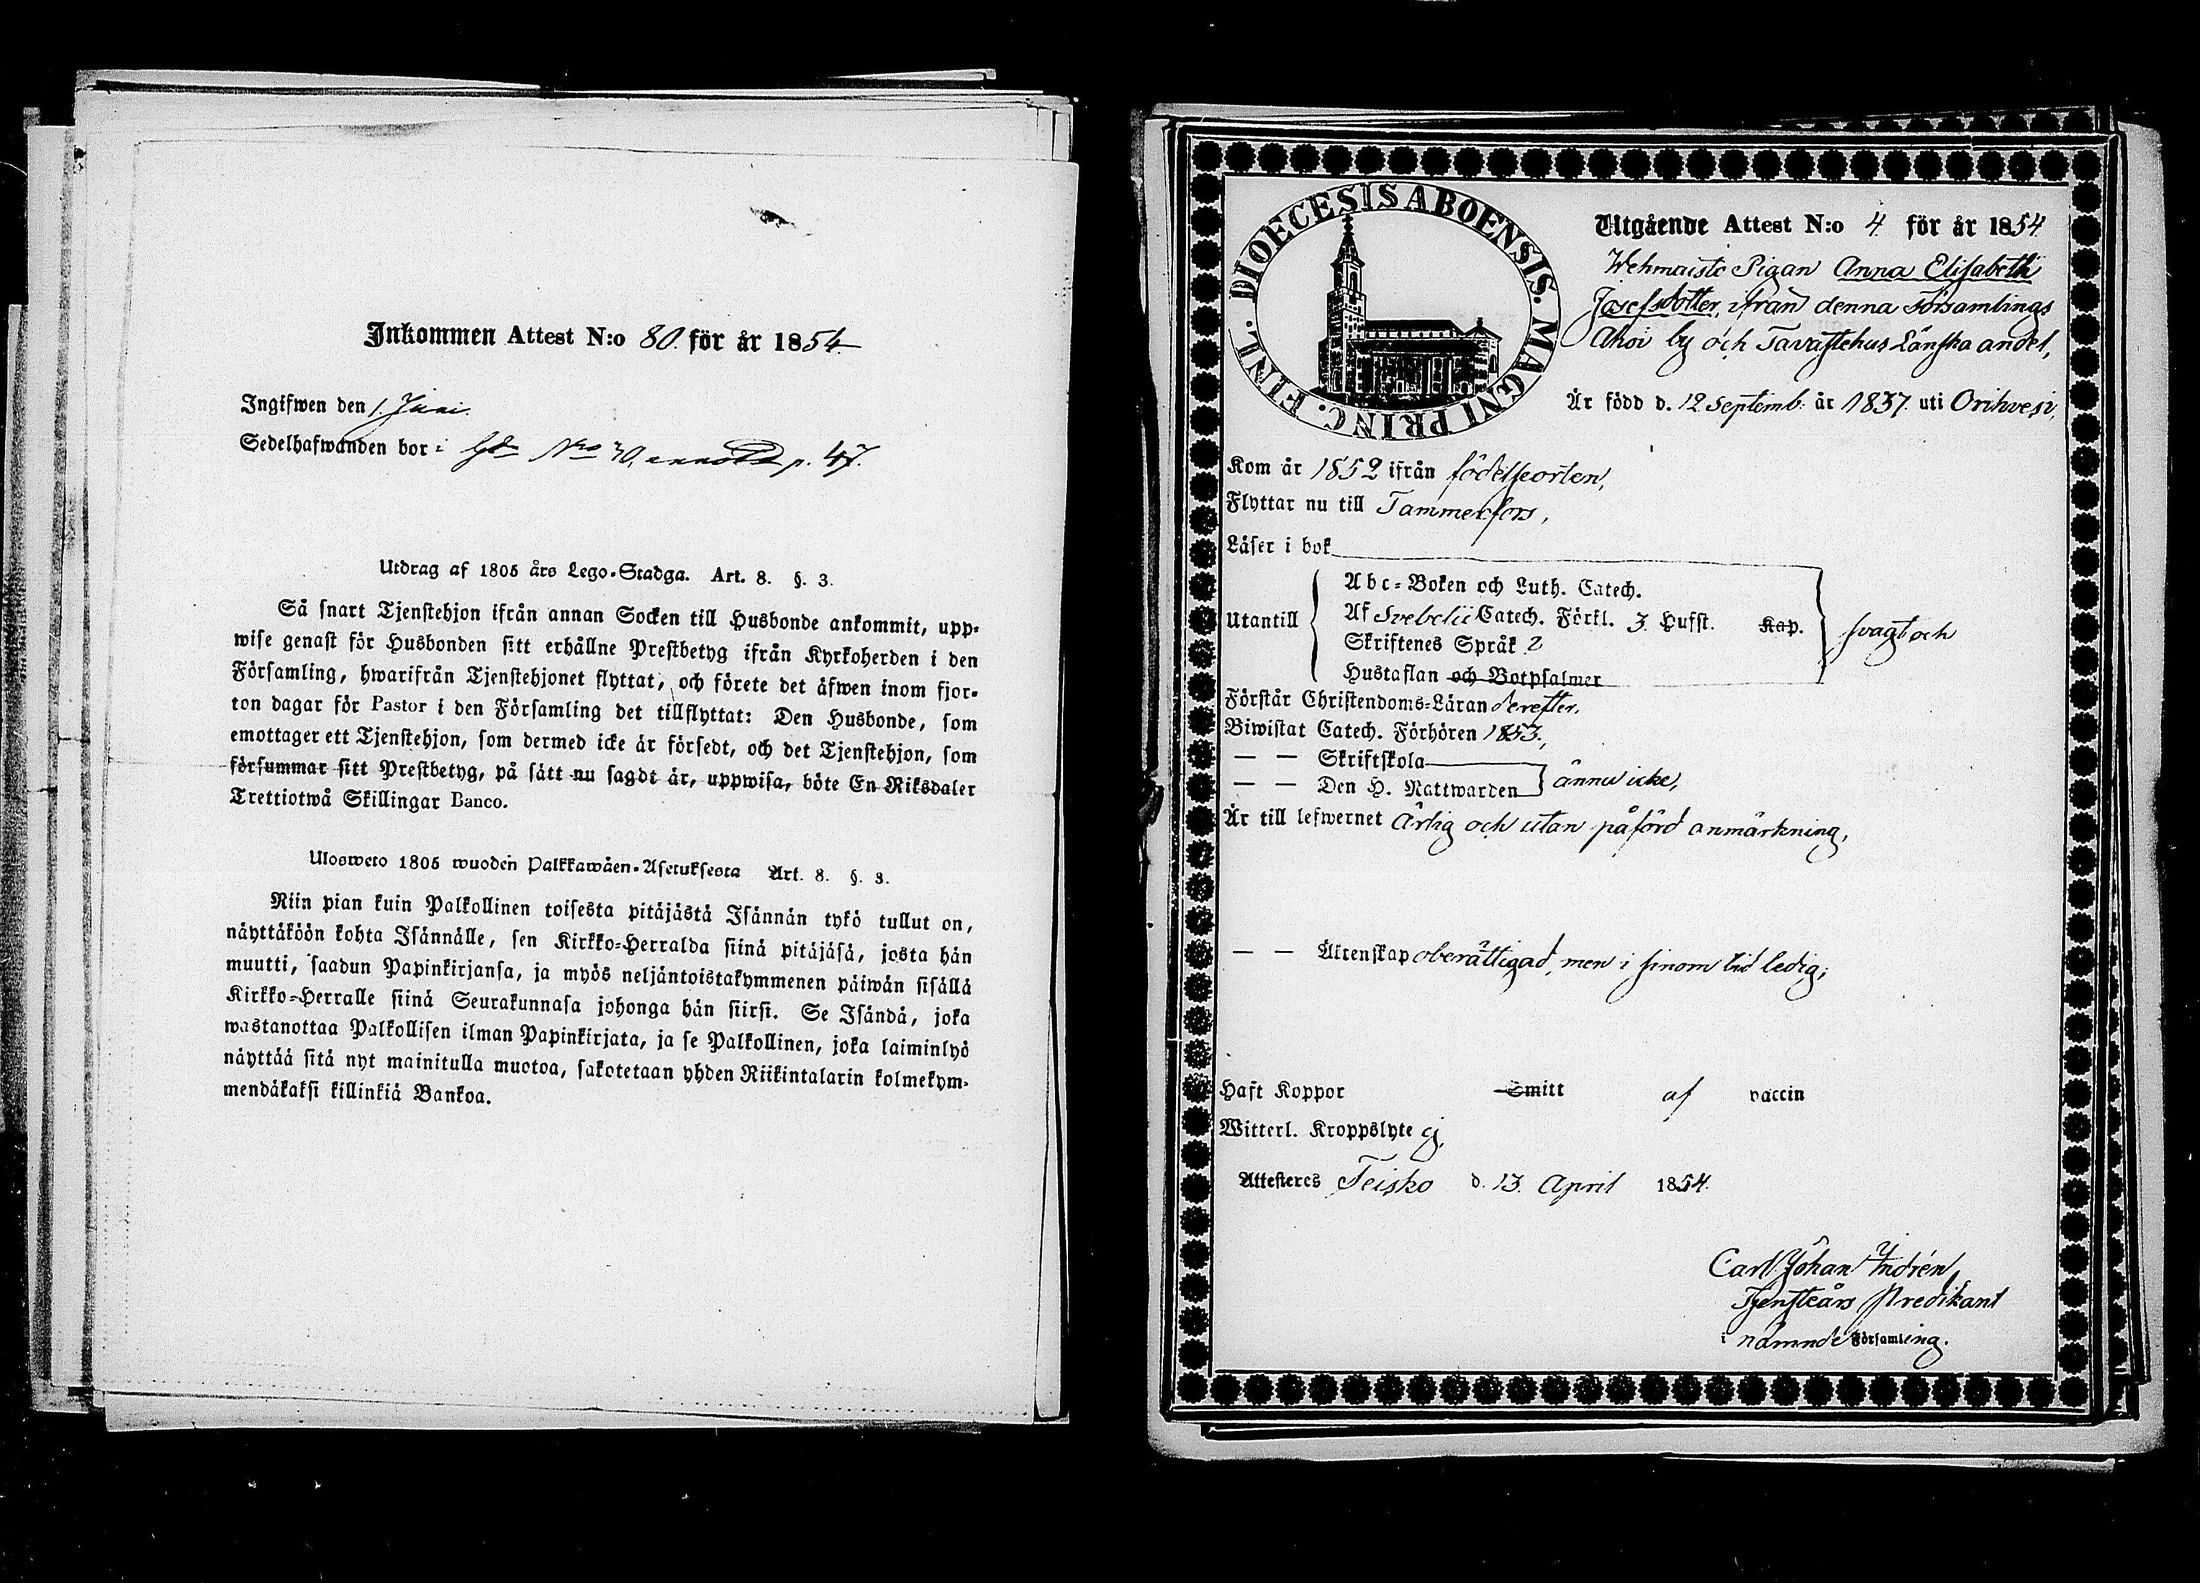 Inkommen Attest N:o 80. för år 1854.
Ingifwen den 1. Juni.
Sedelhafwanden bor i Gd Nro 30, annott p. 47.
Utdrag af 1805 års Lego-Stadga. Art. 8. §. 3.
Så snart Tjenstehjon ifrån annan Socken till Husbonde ankommit, upp-
wise genast för Husbonden sitt erhållne Prestbetyg ifrån Kyrkoherden i den
Församling, hwarifrån Tjenstehjonet flyttat, och förete det äfwen inom fjor-
ton dagar för Pastor i den Församling det tillflyttat: Den Husbonde, som
emottager ett Tjenstehjon, som dermed icke är försedt, och det Tjenstehjon, som
försummar sitt Prestbetyg, på sätt nu sagdt är, uppwisa, böte En Riksdaler
Trettiotwå Skillingar Banco.
Ulosweto 1805 wuoden Palkkawäen-Asetuksesta Art. 8. §. 3.
Niin pian kuin Palkollinen toisesta pitäjästä Isännän tykö tullut on,
näyttäköön kohta Isännälle, sen Kirkko-Herralda siinä pitäjäsä, josta hän
muutti, saadun Papinkirjansa, ja myös neljäntoistakymmenen päiwän sisällä
Kirkko-Herralle siinä Seurakunnasa johonga hän siirsi. Se Isändä, joka
wastanottaa Palkollisen ilman Papinkirjata, ja se Palkollinen, joka laiminlyö
näyttää sitä nyt mainitulla muotoa, sakotetaan yhden Riikintalarin kolmekym-
mendäkaksi killinkiä Bankoa.
DIOECESIS ABOENSIS. MAGNI PRINC. FINL.
Utgående Attest N:o 4 för år 1854
Wehmaisto Pigan Anna Elisabeth
Josefsdotter, ifrån denna Församlings
Ahoi by och Tavastehus Länska andel,
Är född d. 12 Septemb: år 1837. uti Orihvesi,
Kom år 1852 ifrån födelseorten,
Flyttar nu till Tammerfors,
Läser i bok
Utantill
Abc-Boken och Luth. Catech.
Af Svebelii Catech. Förkl. 3. Hufst. Kap.
Skriftenes Språk 2
Hustaflan och Botpsalmer
svagt och
Förstår Christendoms-Läran derefter.
Biwistat Catech. Förhören 1853.,
— — Skriftskola
— — Den H. Nattwarden
ännu icke,
Är till lefwernet ärlig och utan påförd anmärkning,
— — Äktenskap oberättigad, men i sinom tid ledig;
Haft Koppor Smitt af vaccin
Witterl. Kroppslyte ej.
Attesteres Teisko d. 13. April 1854.
Carl Johan Indrén,
Tjensteårs Predikant
i nämnde Församling.